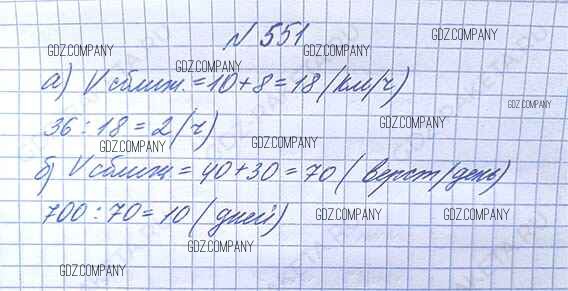 № 551
а) V сближ. = 10 + 8 = 18 (км/ч)
36 : 18 = 2 (ч)
б) V сближ = 40 + 30 = 70 (верст/день)
700 : 70 = 10 (дней)
GDZ.COMPANY
GDZ.COMPANY
GDZ.COMPANY
GDZ.COMPANY
GDZ.COMPANY
GDZ.COMPANY
GDZ.COMPANY
GDZ.COMPANY
GDZ.COMPANY
GDZ.COMPANY
GDZ.COMPANY
GDZ.COMPANY